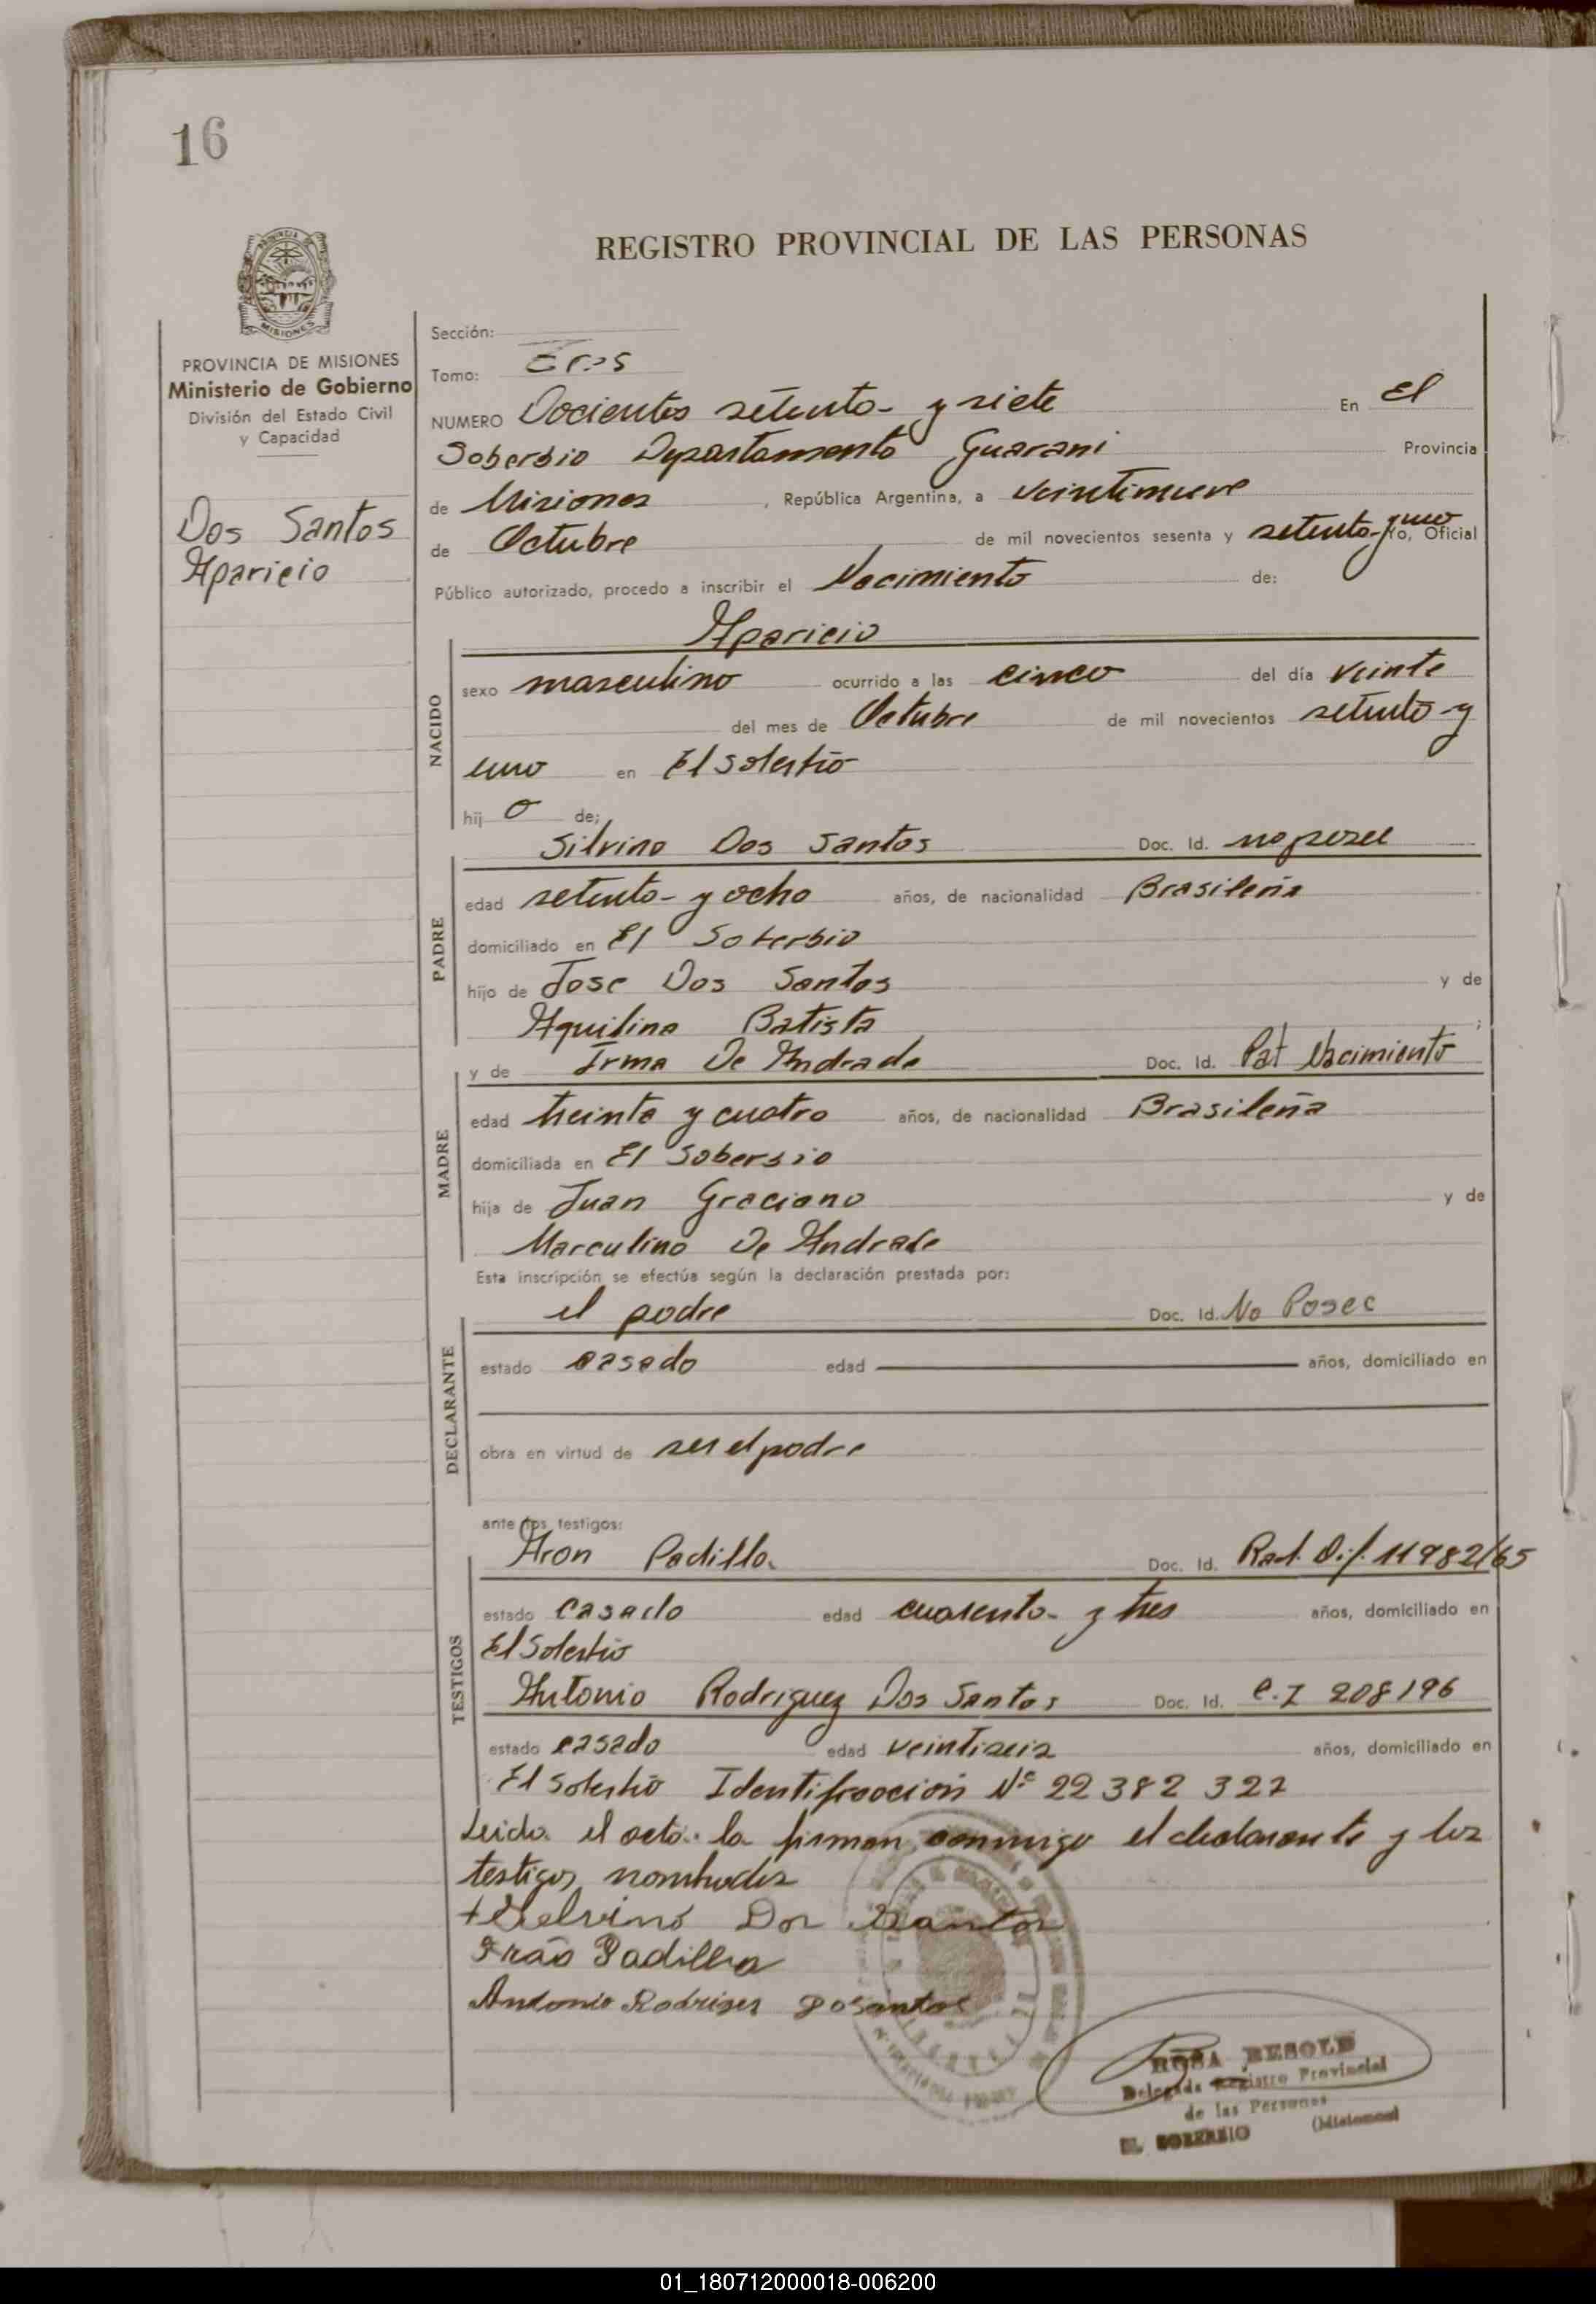 16
REGISTRO PROVINCIAL DE LAS PERSONAS
PROVINCIA DE MISIONES
MISIONES
PROVINCIA DE MISIONES
Ministerio de Gobierno
División del Estado Civil
y Capacidad
Dos Santos
Aparicio
Sección:
Tomo: Tres
NUMERO Docientos setenta y siete En El
Soberbio Departamento Guarani Provincia
de Misiones, República Argentina, a veintinueve
de Octubre de mil novecientos sesenta y setenta y uno Yo, Oficial
Público autorizado, procedo a inscribir el Nacimiento de:
Aparicio
NACIDO
sexo masculino ocurrido a las cinco del día veinte
del mes de Octubre de mil novecientos setenta y
uno en El Soberbio
hij o de;
Silvino Dos Santos Doc. Id. no posee
PADRE
edad setenta y ocho años, de nacionalidad Brasileña
domiciliado en El Soberbio
hijo de Jose Dos Santos y de
Aquilina Batista ;
y de Irma De Andrade Doc. Id. Pat Nacimiento
MADRE
edad treinta y cuatro años, de nacionalidad Brasileña
domiciliada en El Soberbio
hija de Juan Graciano y de
Marculina De Andrade
Esta inscripción se efectúa según la declaración prestada por:
el padre Doc. Id. No Posee
DECLARANTE
estado casado edad años, domiciliado en
obra en virtud de ser el padre
ante los testigos:
Aron Padilla Doc. Id. Rad. Dif. 11982/65
TESTIGOS
estado casado edad cuarenta y tres años, domiciliado en
El Soberbio
Antonio Rodriguez Dos Santos Doc. Id. C.I 208196
estado casado edad veintiseis años, domiciliado en
El Soberbio Identificación Nº 22 382 327
Leida el acta la firman conmigo el declarante y los
testigos nombrados
+ Selvino Dos Santos
Arão Padilha
Antonio Rodrigues dosantos
ROSA BESOLD
Delegada Registro Provincial
de las Personas
EL SOBERBIO (Misiones)
01_180712000018-006200